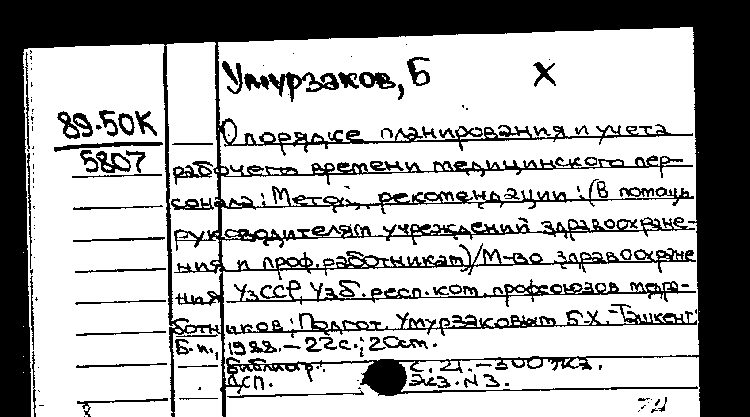 Умурзаков, Б X
89-50К
5807
О порядке планирования и учета
рабочего времени медицинского пер-
сонала: Метод. рекомендации: (В помощь
руководителям учреждений здравоохране-
ния и проф.работникам)/М-во здравоохране
ния УзССР, Узб.респ.ком. профсоюзов медра-
ботников; Подгот. Умурзаковым Б.Х.-Ташкент:
Б.и., 1988.-22с.; 20см.
Библиогр.: с.21.-300 экз.
ДСП. Экз.№3.